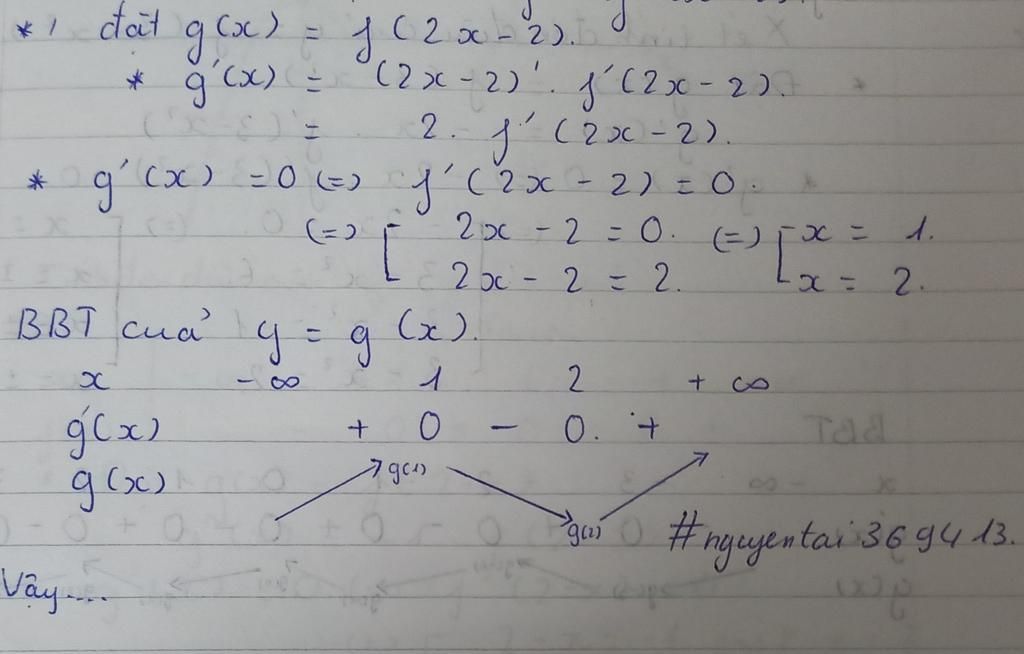 * / đặt g(x) = f(2x-2).
* g'(x) = (2x-2)'. f'(2x-2).
= 2. f'(2x-2).
* g'(x) = 0 (=) f'(2x-2) = 0.
(=) [ 2x-2 = 0. (=) [ x = 1.
2x-2 = 2. x = 2.
BBT của y = g(x).
x -∞ 1 2 +∞
g'(x) + 0 - 0. +
g(x) g(1)
g(2) #nguyentai369413.
Vậy....